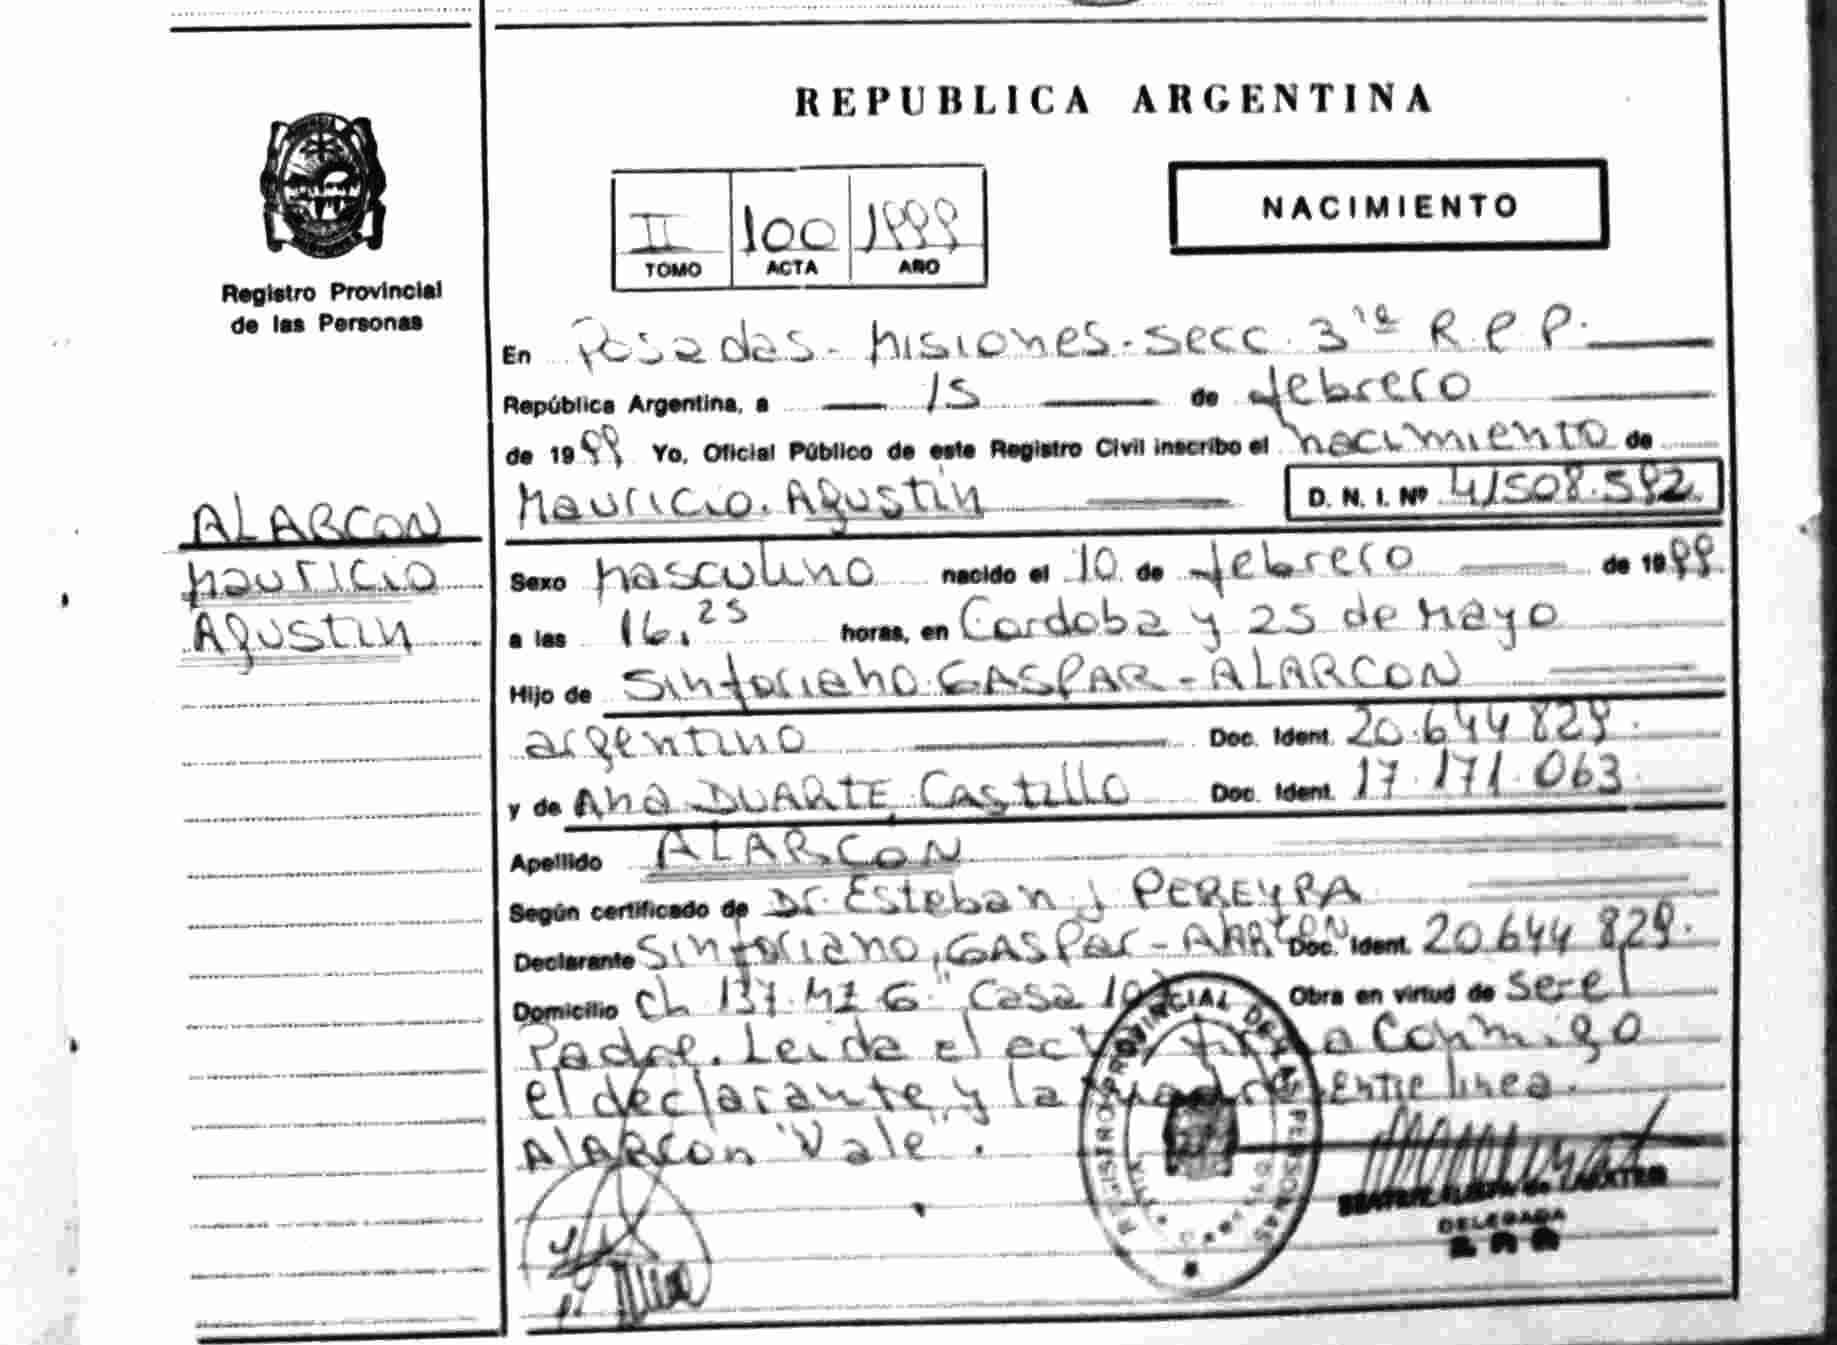 REPUBLICA ARGENTINA
NACIMIENTO
II 100 1999
TOMO ACTA AÑO
Registro Provincial
de las Personas
En Posadas - Misiones - Secc. 3ra R.P.P.
República Argentina, a 15 de febrero
de 1999 Yo, Oficial Público de este Registro Civil inscribo el nacimiento de
Mauricio Agustin D. N. I. Nº 41508.592
ALARCON
Mauricio
Agustin
Sexo Masculino nacido el 10 de febrero de 1999
a las 16,25 horas, en Cordoba y 25 de Mayo
Hijo de Sinforiano GASPAR - ALARCON
argentino Doc. Ident. 20.644 829.
y de Ana DUARTE Castillo Doc. Ident. 17.171.063
Apellido ALARCON
Según certificado de Dr. Esteban J PEREYRA
Declarante Sinforiano, GASPAR - Doc. Ident. 20.644 829.
Domicilio Ch 137. Mz G. Casa Obra en virtud de ser el
Padre. Leida el Conmigo
el declarante y la entre linea.
ALARCON "Vale".
REGISTRO PROVINCIAL DE LAS PERSONAS
DELEGADA